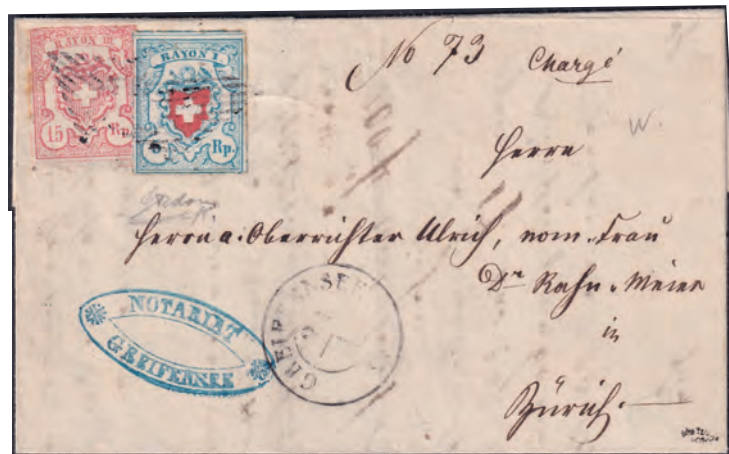 RAYON III.
15 Rp.
RAYON I.
5 Rp.
No 73 Chargé
W.
Herrn
Herrn a. Oberrichter Ulrich, nom. Frau
Dr Rahn-Meier
in
Zürich.
NOTARIAT
GREIFENSEE
GREIFENSEE